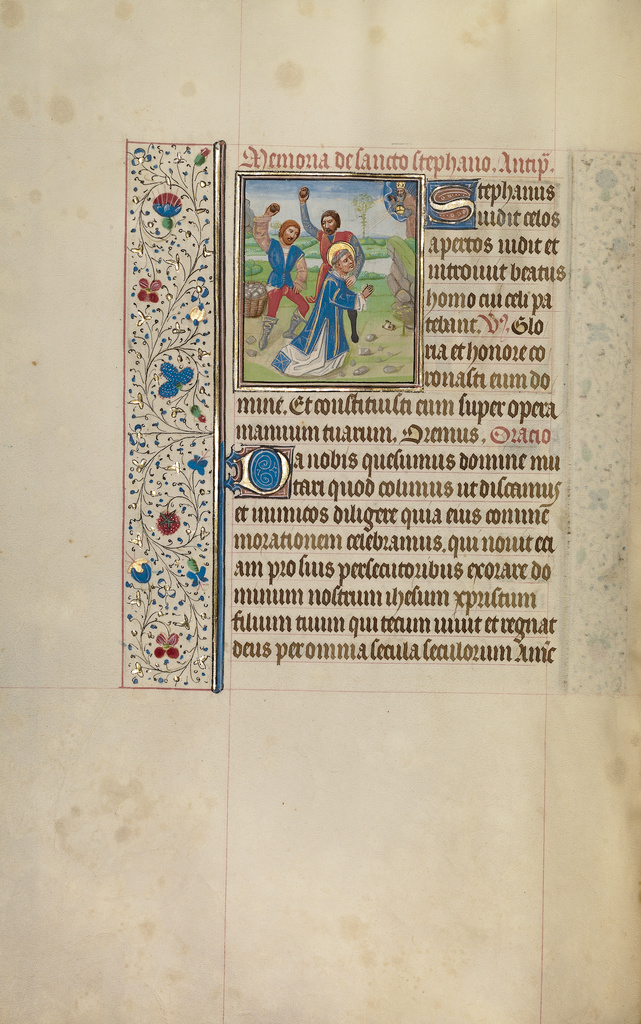 Memoria de sancto stephano. Antip̄.
Stephanus
uidit celos
apertos uidit et
introiuit beatus
homo cui celi pa
tebant. V̓. Glo
ria et honore co
ronasti eum do
mine. Et constituisti eum super opera
manuum tuarum. Oremus. Oracio
Da nobis quesumus domine mu
tari quod colimus ut discamus
et inimicos diligere quia eius comme
morationem celebramus. qui nouit eci
am pro suis persecutoribus exorare do
minum nostrum ihesum xpristum
filium tuum qui tecum uiuit et regnat
deus per omnia secula seculorum Amē